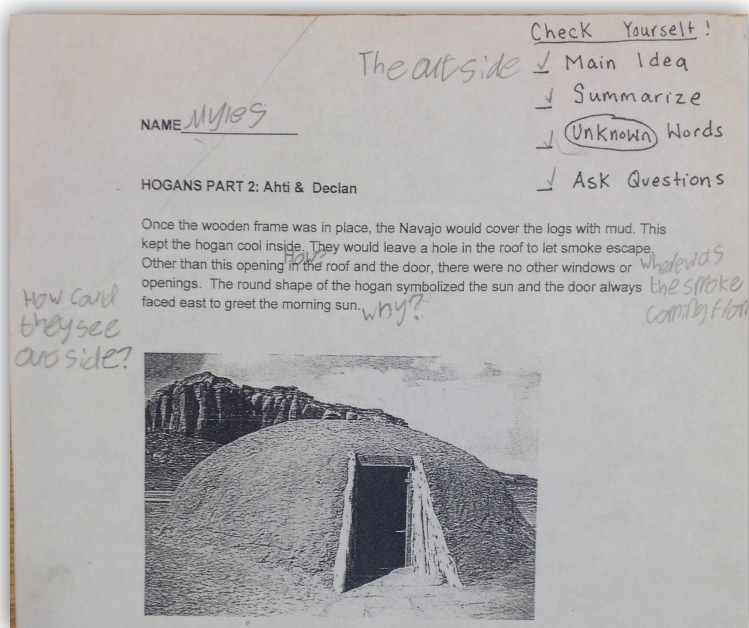 Check Yourself!
The outside ✓ Main Idea
✓ Summarize
✓ Unknown Words
✓ Ask Questions
NAME Myles
HOGANS PART 2: Ahti & Declan
Once the wooden frame was in place, the Navajo would cover the logs with mud. This
kept the hogan cool inside. They would leave a hole in the roof to let smoke escape.
How?
Other than this opening in the roof and the door, there were no other windows or
openings. The round shape of the hogan symbolized the sun and the door always
faced east to greet the morning sun. why?
where was
the smoke
coming from
How could
they see
outside?